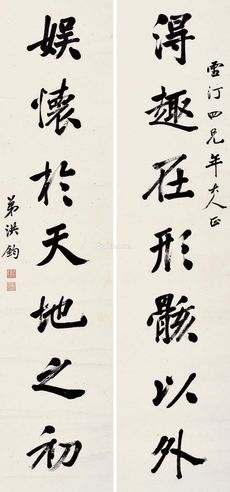 雪汀四兄年大人正
得趣在形骸以外
娱懷於天地之初
弟洪鈞